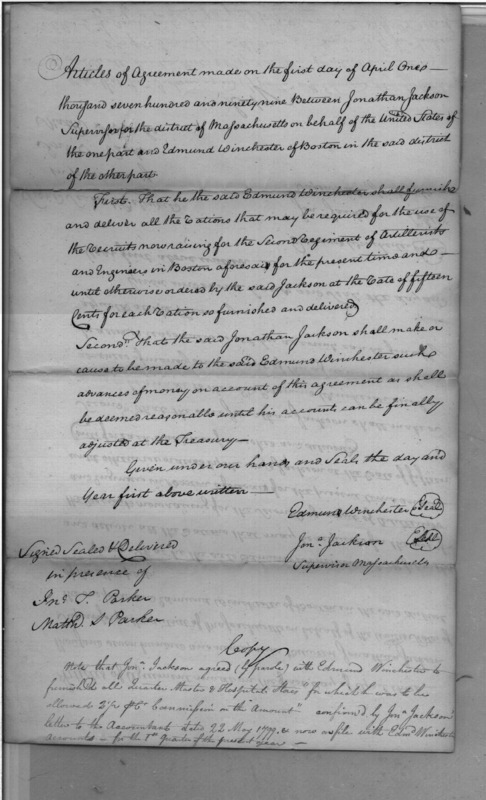 Articles of Agreement made on the first day of April One
thousand seven hundred and ninety nine Between Jonathan Jackson
Supervisor for the district of Massachusetts on behalf of the United States of
the one part and Edmund Winchester of Boston in the said district
of the other part.
First. That he the said Edmund Winchester shall furnish
and deliver all the Rations that may be required for the use of
the Recruits now raising for the Second Regiment of Artillerists
and Engineers in Boston aforesaid for the present time and
until otherwise ordered by the said Jackson at the Rate of fifteen
Cents for each Ration so furnished and delivered
Second. That the said Jonathan Jackson shall make or
cause to be made to the said Edmund Winchester such
advances of money on account of this agreement as shall
be deemed reasonable until his accounts can be finally
adjusted at the Treasury—
Given under our hands and Seals the day and
Year first above written—
Edmund Winchester Seal
Jonn. Jackson Seal
Supervisor Massachusetts
Signed Sealed & Delivered
in presence of
Jno. T. Parker
S Parker
Copy
Note that Jonn. Jackson agreed (by parole) with Edmund Winchester to
furnish all Quarter Master & Hospital Stores for which he was to be
allowed Commission on the Amount— confirmed by Jonn. Jackson
letter to the Accountant dated 22 May 1799 & now on file with Edmd Winchester
accounts for the 1st Quarter of the present year—